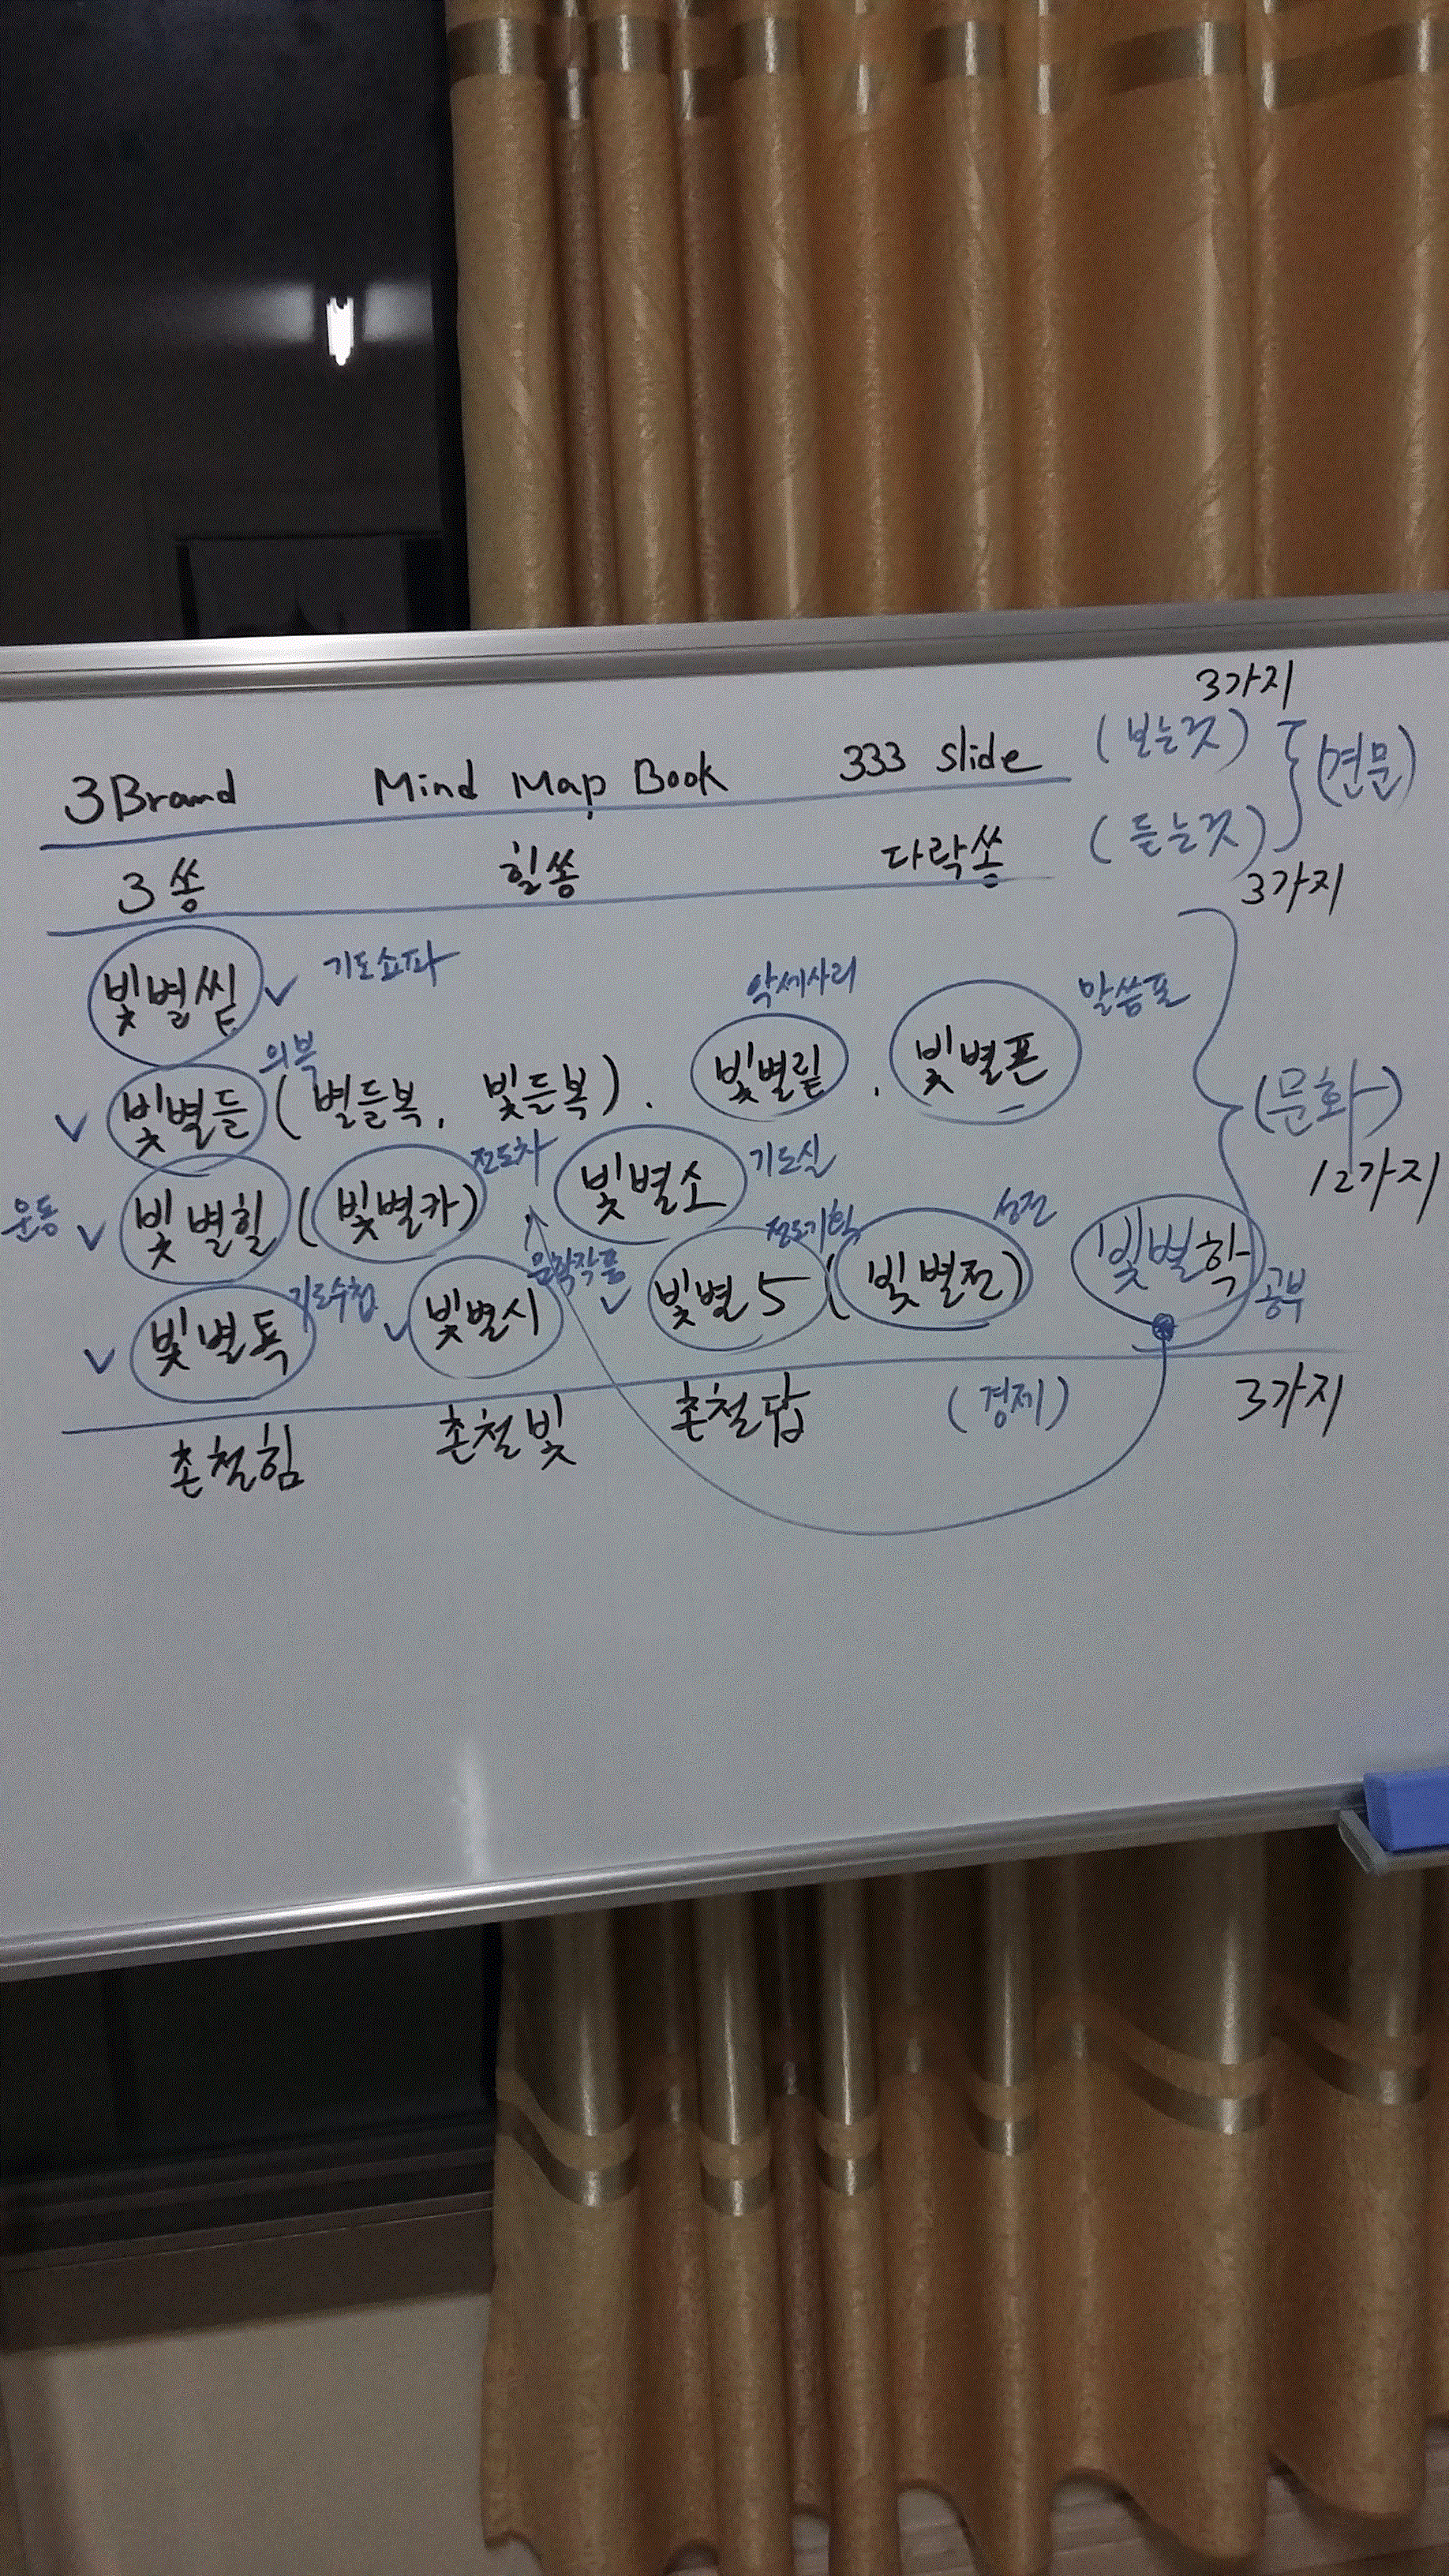 3가지
3 Brand Mind Map Book 333 slide (보는것) (견문)
3쏭 힐쏭 다락쏭 (듣는것)
3가지
빛별씥 기도쇼파
악세사리 말씀폰
의복
빛별들 (별들복, 빛들복). 빛별맅 . 빛별폰 (문화)
12가지
운동 빛별힐 (빛별카) 전도차 빛별소 기도실
기도수첩 문학작품 전도기획 성전
빛별톡 빛별시 빛별5 (빛별전) 빛별학 공부
촌철힘 촌철빛 촌철답 (경제) 3가지